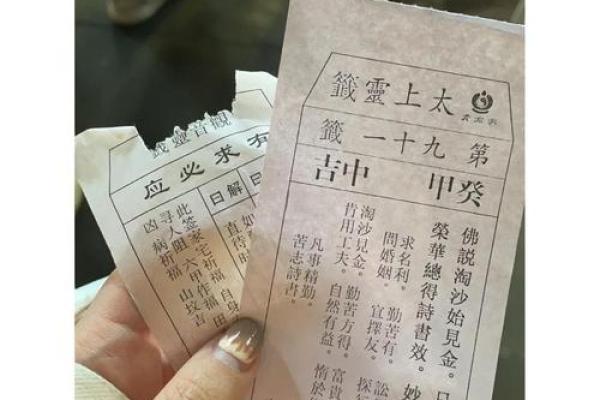 太上靈籤
第九十一籤
癸甲 中吉
佛說淘沙始見金。
榮華總得詩書效。妙
求名利 勤苦有。訟
問婚姻 宜擇友。探
淘沙見金。勤苦方得。富貴
肯用工夫。自然有益。惰於
凡事精勤
苦志詩書。
觀音靈籤
有求必应
解曰
直待時
此签家宅祈福 自身
寻人阻 六甲作福 田
凶 病祈福 山坟吉